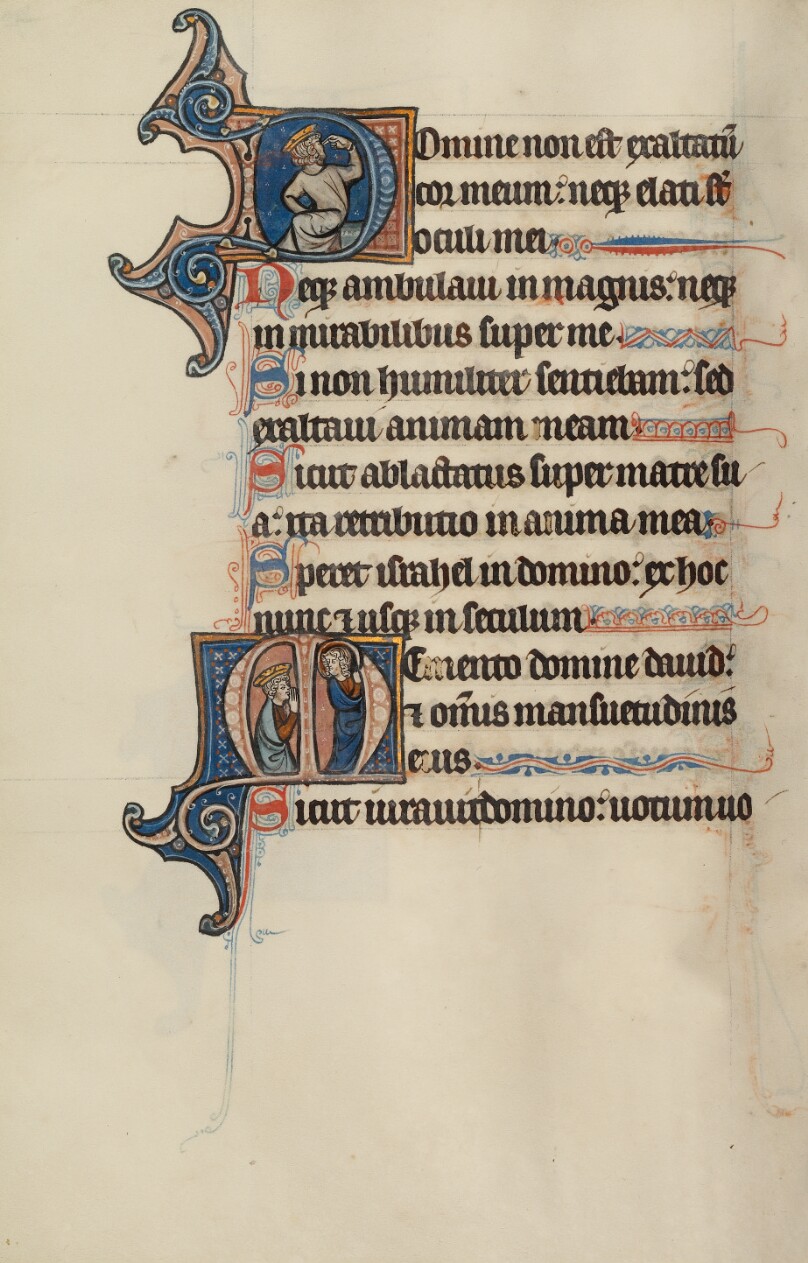 Domine non est exaltatū
cor meum: neqꝫ elati st̄
oculi mei
Neqꝫ ambulaui in magnis: neqꝫ
in mirabilibus super me.
Si non humiliter sentiebam: sed
exaltaui animam meam.
Sicut ablactatus super matre su
a: ita retributio in anima mea.
Speret israhel in domino: ex hoc
nunc ⁊ usqꝫ in seculum.
Memento domine dauid:
⁊ om̄is mansuetudinis
eius.
Sicut iurauit domino: uotum uo